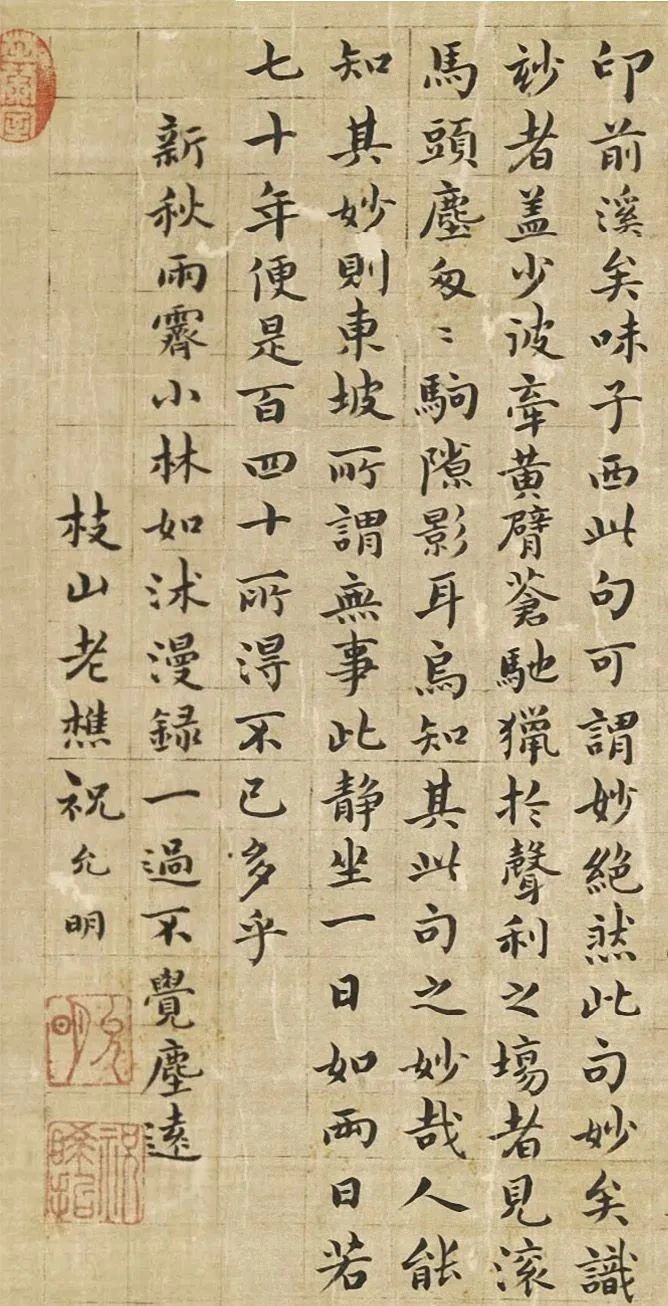 印前溪矣味子西此句可謂妙絶然此句妙矣識
玅者盖少彼牽黃臂蒼馳獵於聲利之場者見滚
馬頭塵匆〻駒隙影耳烏知其此句之妙哉人能
知其妙則東坡所謂無事此静坐一日如兩日若
七十年便是百四十所得不已多乎
新秋雨霽小林如沭漫録一過不覺塵遠
枝山老樵祝允明
允明
祝